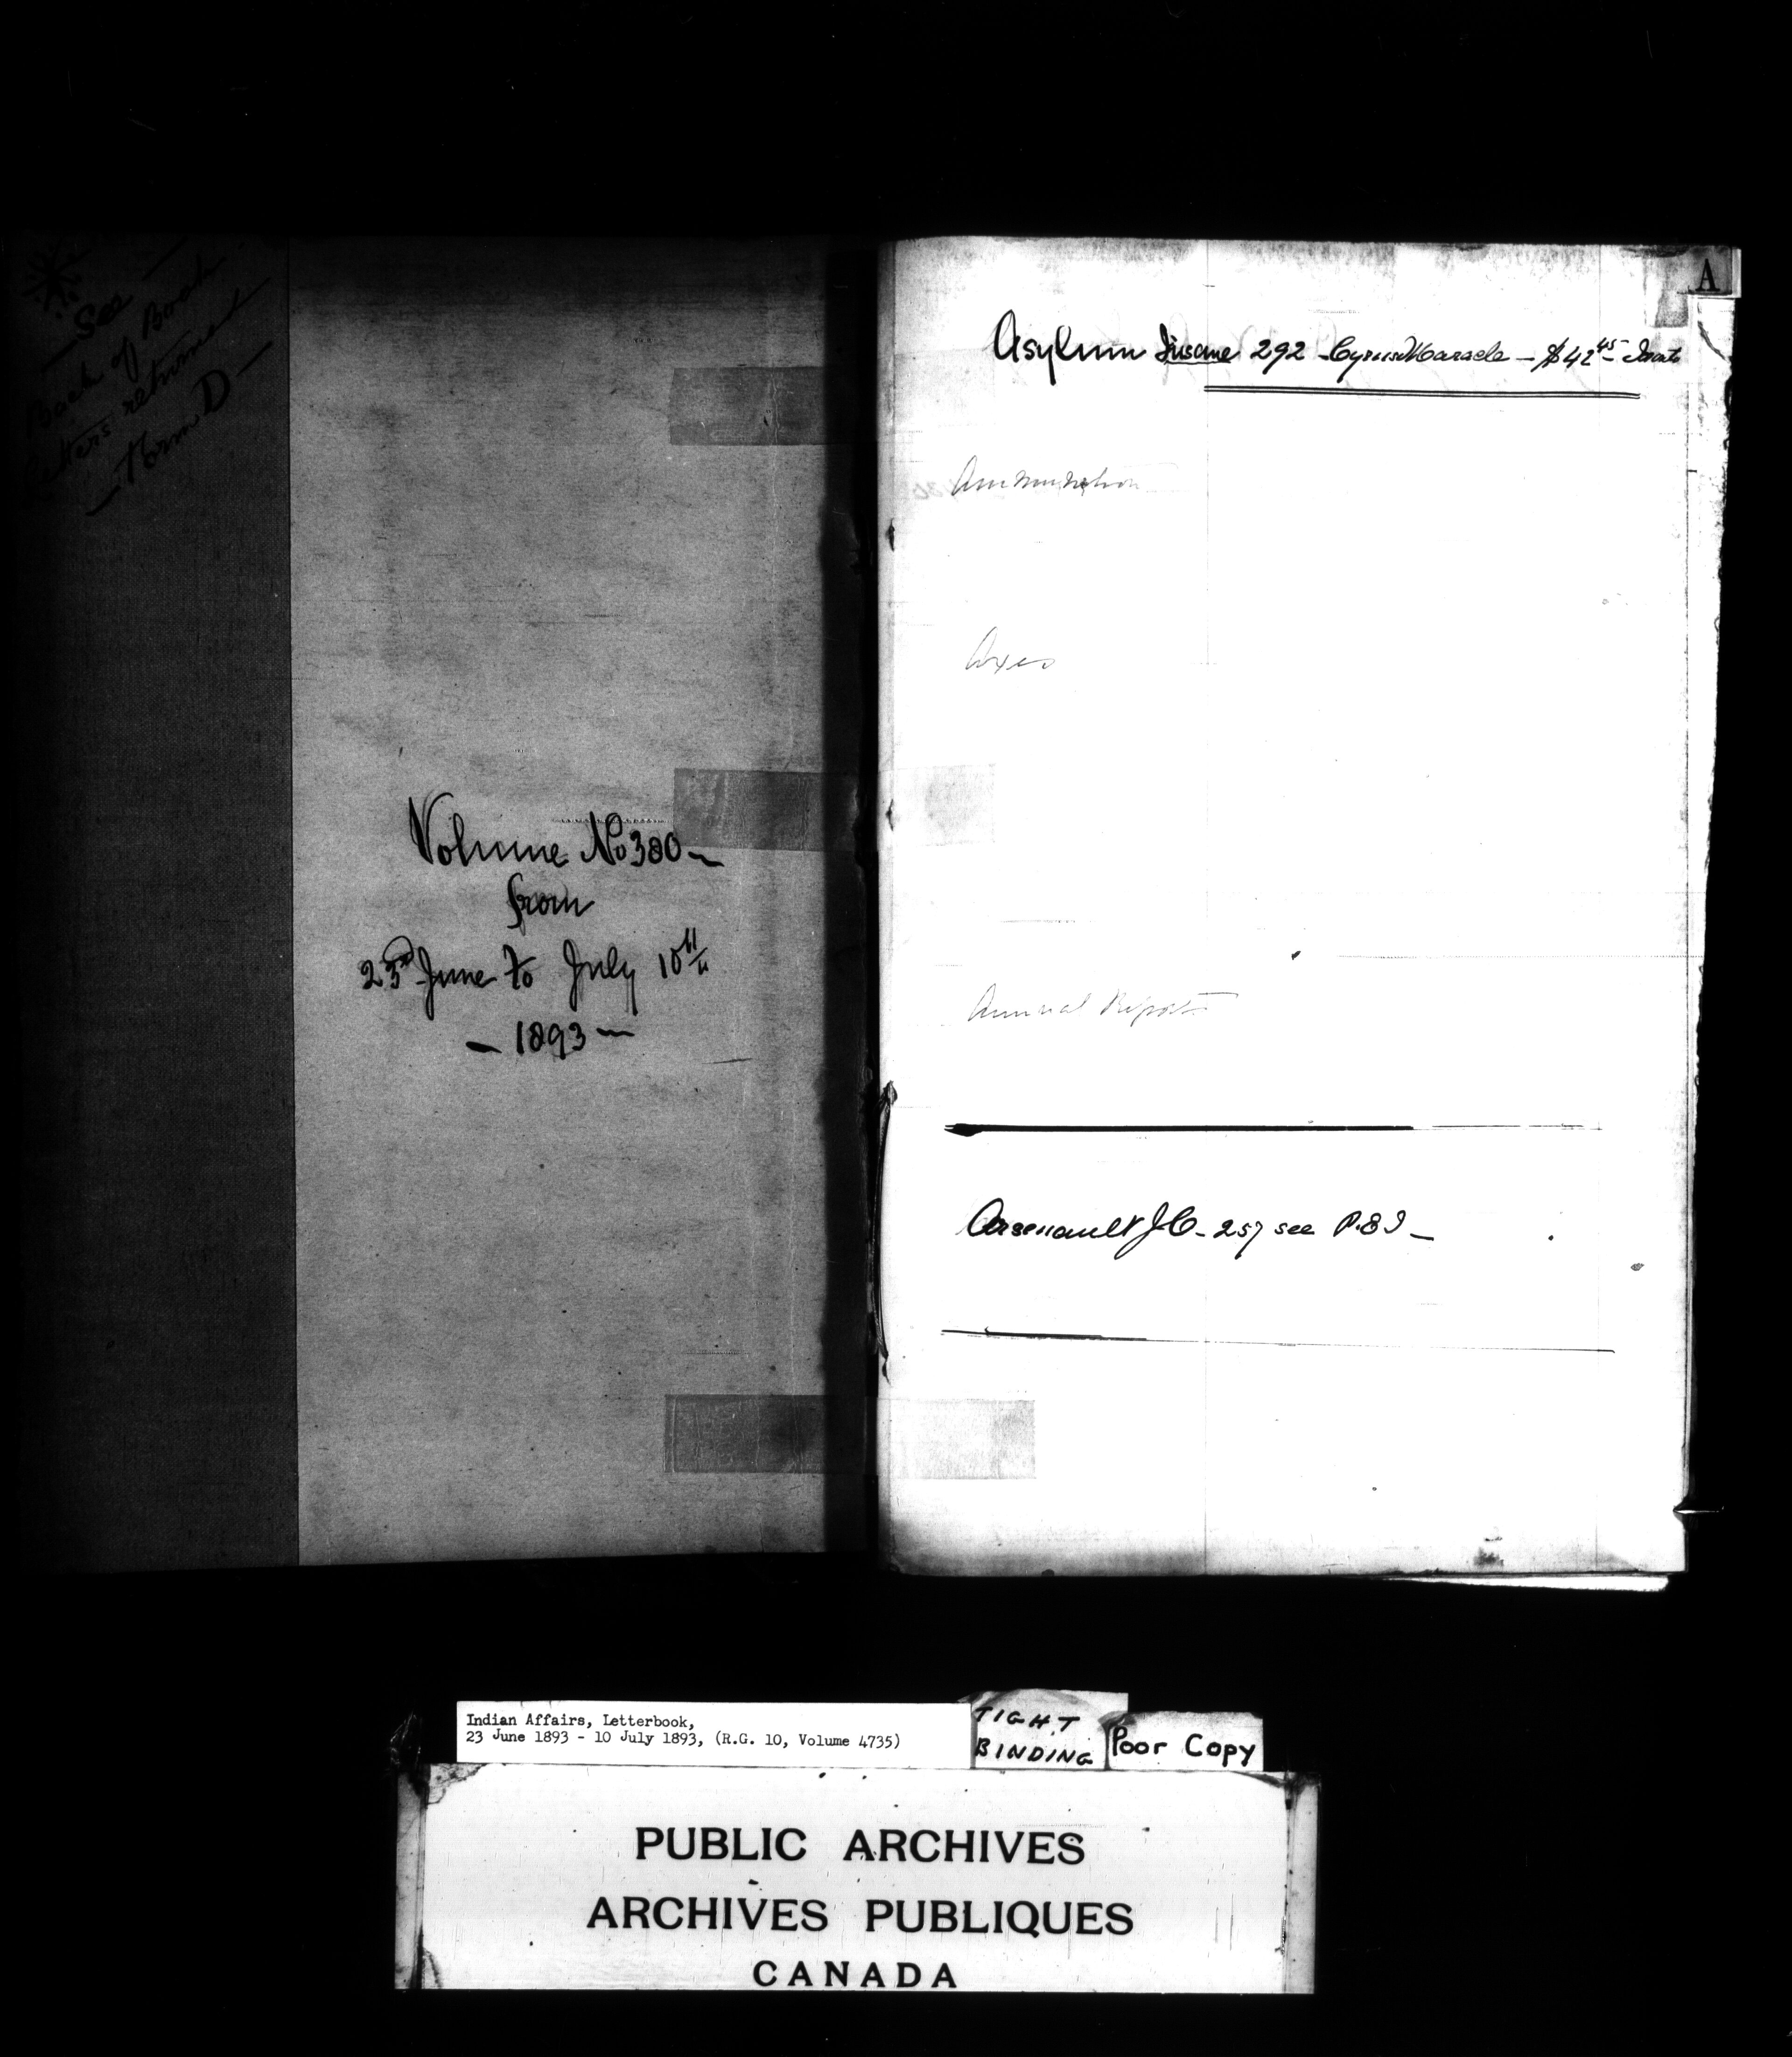 See
Back of Book
Letters returned
Form D
Volume No 380
from
23rd June to July 10th
1893
A
Asylum Insane 292 Cyrus Maracle - $42.45
Ammunition
Axes
Annual Report
Arsenault J.C. 257 see P.E.I.
Indian Affairs, Letterbook,
23 June 1893 - 10 July 1893, (R.G. 10, Volume 4735)
TIGHT
BINDING
Poor Copy
PUBLIC ARCHIVES
ARCHIVES PUBLIQUES
CANADA